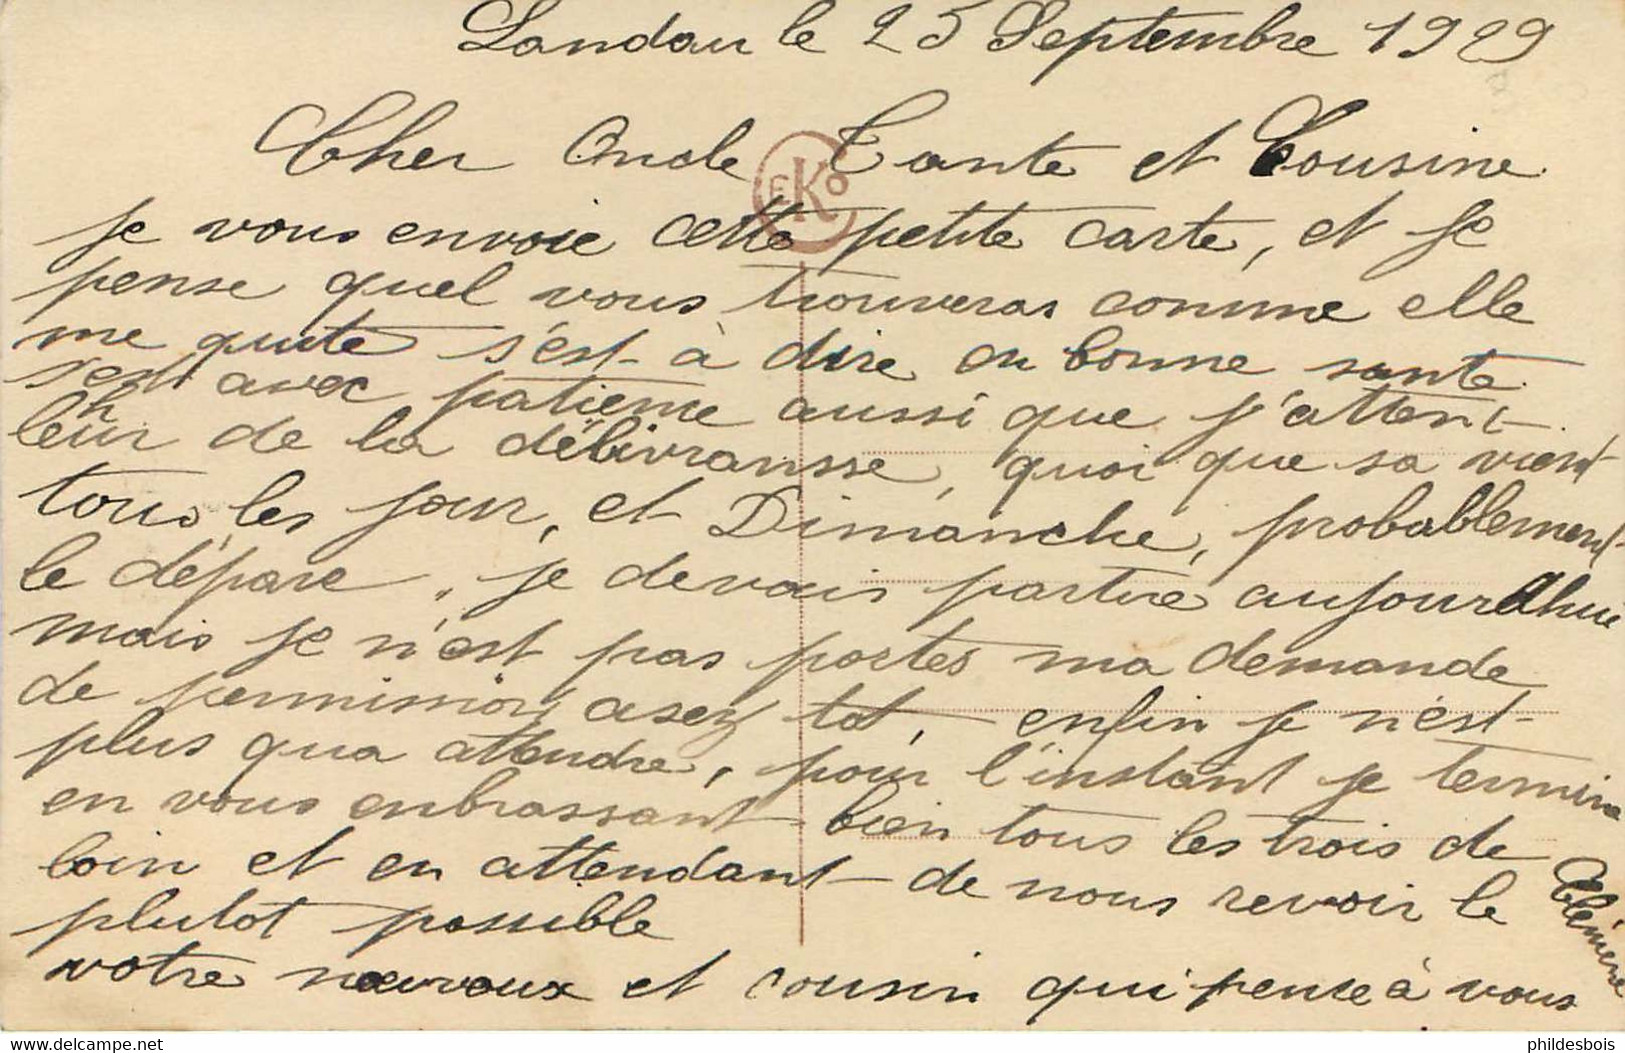 Landau le 25 Septembre 1929
Cher Oncle Tante et Cousine
je vous envoie cette petite carte, et je
pense quel vous trouveras comme elle
me quite s'est à dire en bonne sante
s'est avec patience aussi que j'attent
leur de la délivransse, quoi que sa vient
tous les jour, et Dimanche, probablement
le dépare, je devais partire aujourdhui
mais je n'est pas portes ma demande
de permission asez tot, enfin je n'est
plus qua attendre, pour l'instant je termine
en vous enbrassant bien tous les trois de
loin et en attendant de nous revoir le
plutot possible
votre neuveux et cousin qui pense à vous
Clémene
EKO
www.delcampe.net
phildesbois